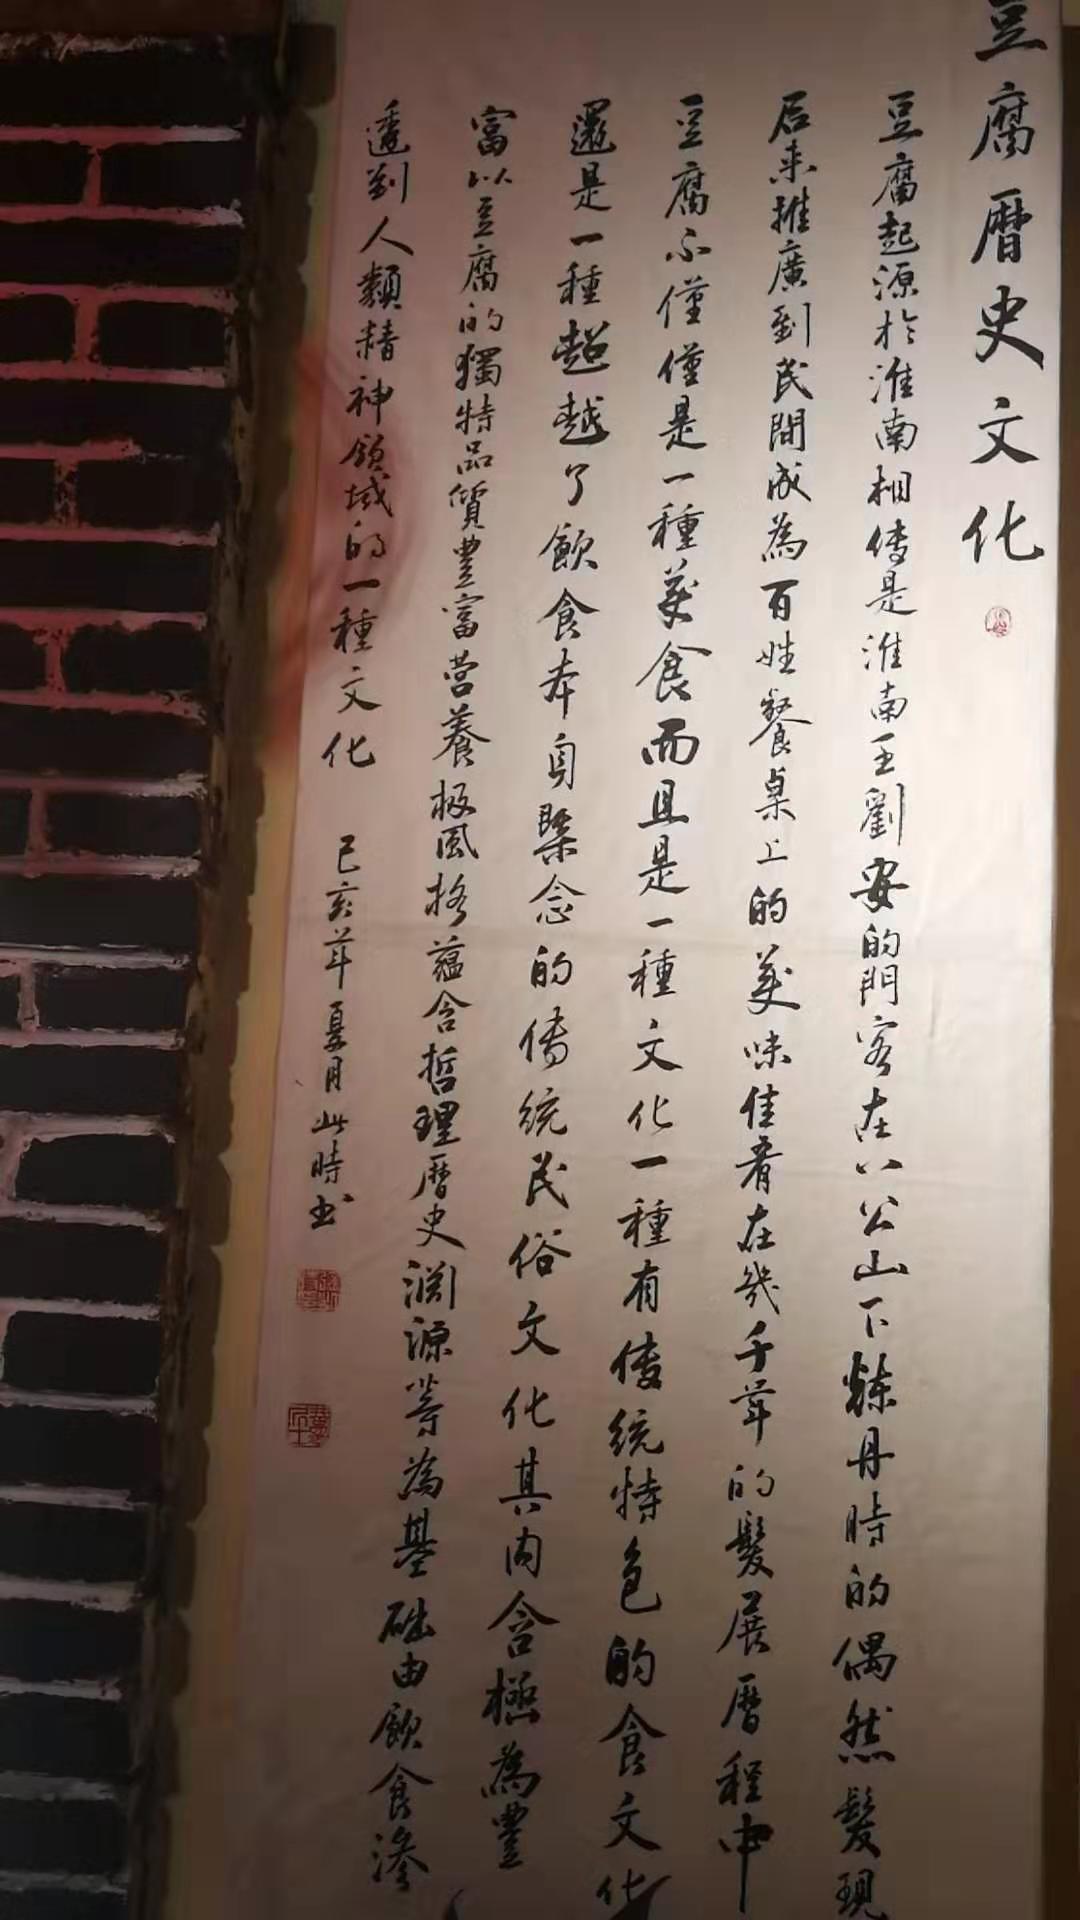 豆腐曆史文化
豆腐起源於淮南相傳是淮南王劉安的門客在八公山下煉丹時的偶然髮現
后来推廣到民間成為百姓餐桌上的美味佳肴在幾千年的髮展曆程中
豆腐不僅僅是一種美食而且是一種文化一種有傳統特色的食文化
還是一種超越了飲食本身槩念的傳統民俗文化其内含極為豐
富以豆腐的獨特品質豐富营養极風格蘊含哲理曆史淵源等為基础由飲食滲
透到人類精神領域的一種文化
己亥年夏月此時书